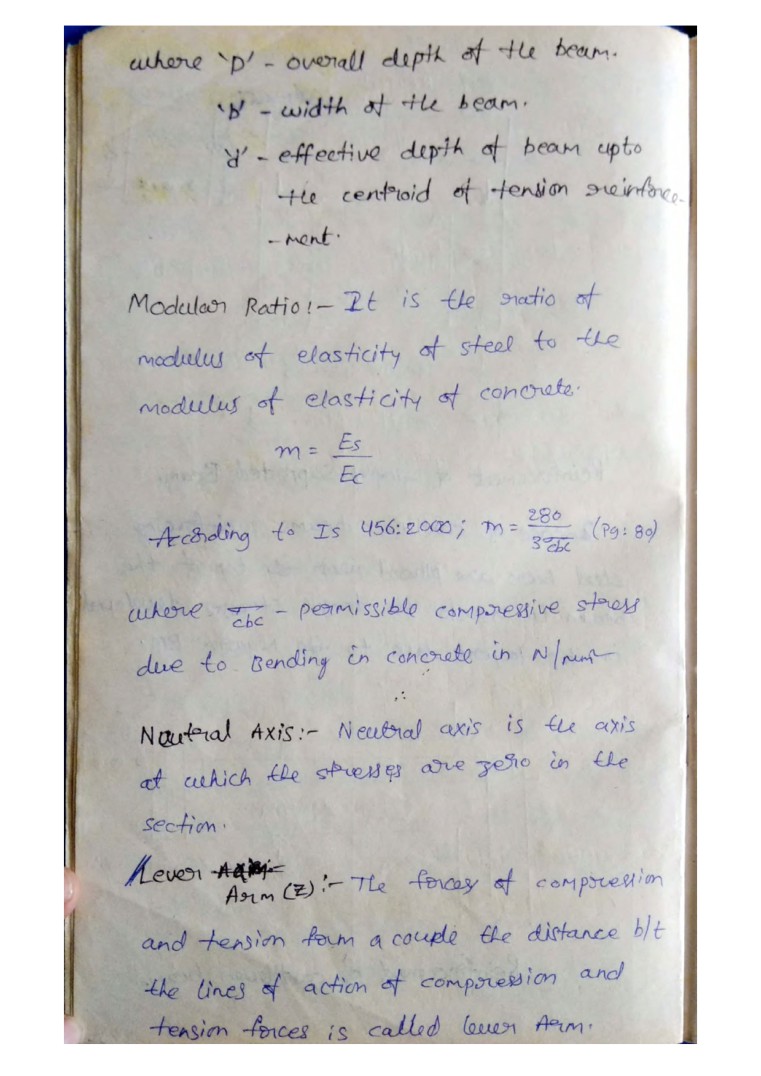 where 'D' - overall depth of the beam.
'b' - width of the beam.
'd' - effective depth of beam upto
the centroid of tension reinforce-
-ment.
Modular Ratio:- It is the ratio of
modulus of elasticity of steel to the
modulus of elasticity of concrete.
m = Es/Ec
According to Is 456:2000; m = 280/3σcbc (Pg: 80)
where σcbc - permissible compressive stress
due to Bending in concrete in N/mm²
Neutral Axis:- Neutral axis is the axis
at which the stresses are zero in the
section.
Lever Arm (Z):- The forces of compression
and tension form a couple the distance b/t
the lines of action of compression and
tension forces is called lever Arm.